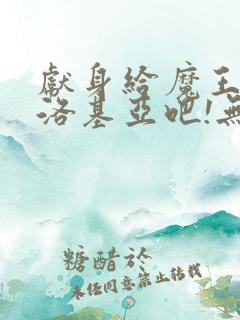 獻身給魔王
洛基亞吧!無
糖醋於
未經同意禁止轉載